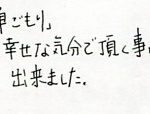 ごもり」
幸せな気分で頂く事
出来ました。